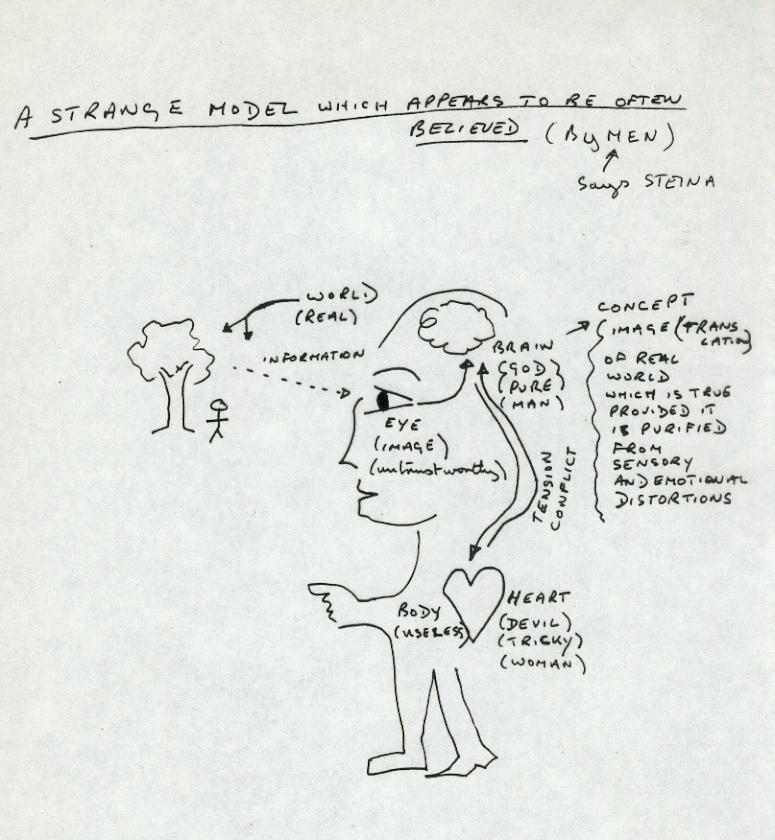 A STRANGE MODEL WHICH APPEARS TO BE OFTEN
BELIEVED (By MEN)
Says STEINA
WORLD
(REAL)
INFORMATION
EYE
(IMAGE)
(untrustworthy)
BRAIN
(GOD)
(PURE)
(MAN)
CONCEPT
(IMAGE (TRANS
LATION)
OF REAL
WORLD
WHICH IS TRUE
PROVIDED IT
IS PURIFIED
FROM
SENSORY
AND EMOTIONAL
DISTORTIONS
TENSION
CONFLICT
BODY
(USELESS)
HEART
(DEVIL)
(TRICKY)
(WOMAN)